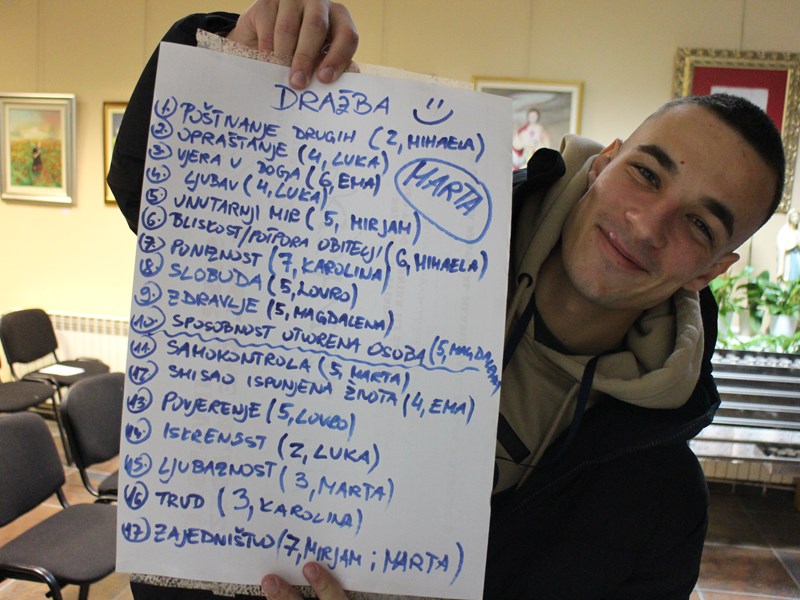 DRAŽBA
1. POŠTIVANJE DRUGIH (2, MIHAELA)
2. OPRAŠTANJE (4, LUKA)
3. VJERA U BOGA (6, EMA)
MARTA
4. LJUBAV (4, LUKA)
5. UNUTARNJI MIR (5, MIRJAM)
6. BLISKOST/POTPORA OBITELJI (6, MIHAELA)
7. PONIZNOST (7, KAROLINA)
8. SLOBODA (5, LOVRO)
9. ZDRAVLJE (5, MAGDALENA)
10. SPOSOBNOST OTVORENA OSOBA (5, MAGDALENA)
11. SAMOKONTROLA (5, MARTA)
12. SMISAO ISPUNJENA ŽIVOTA (4, EMA)
13. POVJERENJE (5, LOVRO)
14. ISKRENOST (2, LUKA)
15. LJUBAZNOST (3, MARTA)
16. TRUD (3, KAROLINA)
17. ZAJEDNIŠTVO (7, MIRJAM i MARTA)